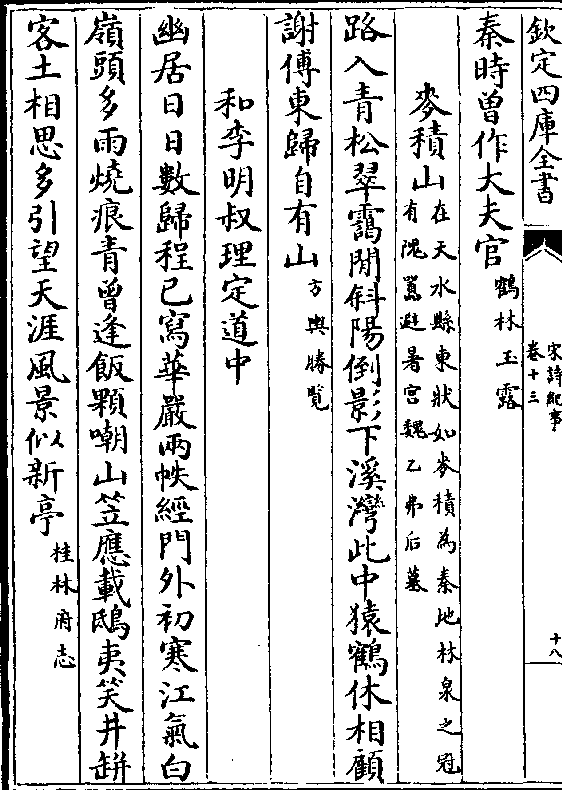 欽定四庫全書
宋詩紀事
卷十三
十八
秦時曾作大夫官
鶴林玉露
麥積山
在天水縣東狀如麥積為秦地林泉之冠
有隗囂避暑宫魏乙弗后墓
路入青松翠靄閒斜陽倒影下溪灣此中猿鶴休相顧
謝傅東歸自有山
方輿勝覽
和李明叔理定道中
幽居日日數歸程已寫華嚴兩帙經門外初寒江氣白
嶺頭多雨燒痕青曾逢飯顆嘲山笠應載鴟夷笑井缾
客土相思多引望天涯風景似新亭
桂林府志